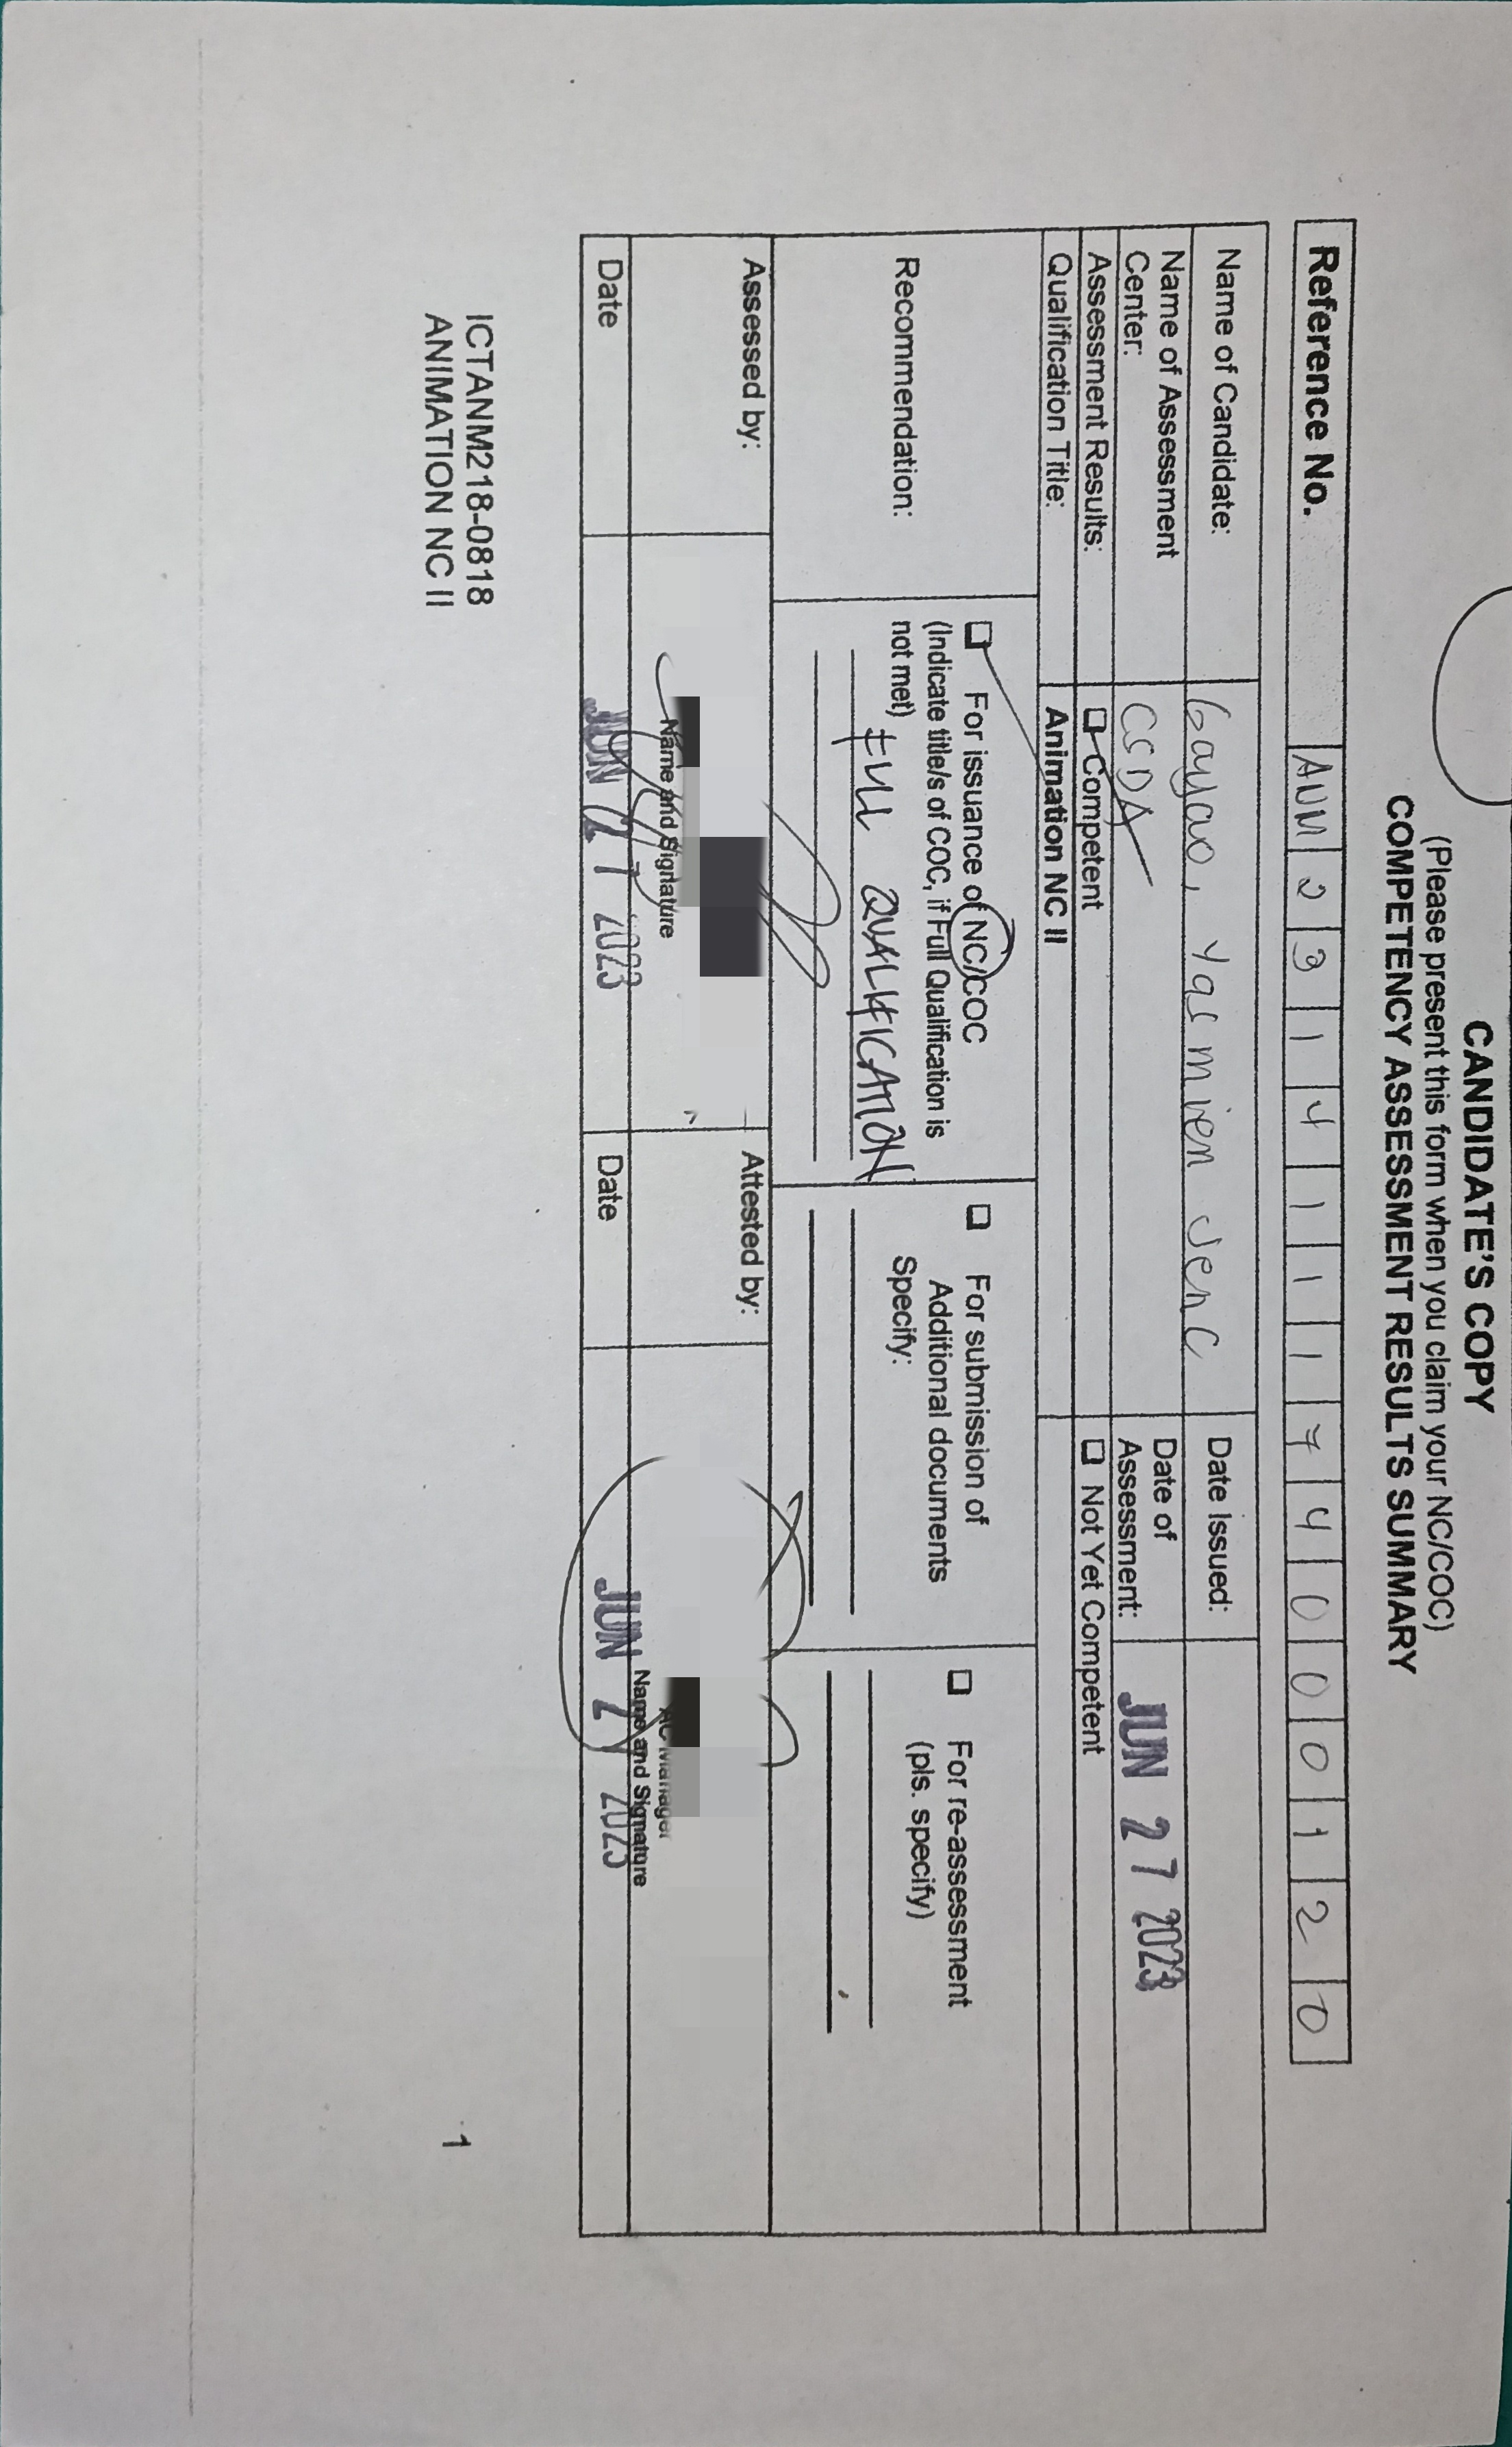 CANDIDATE'S COPY
(Please present this form when you claim your NC/COC)
COMPETENCY ASSESSMENT RESULTS SUMMARY
Reference No. ANM 2 3 1 4 1 1 1 7 4 0 0 0 1 2 0
Name of Candidate: Gayao, Yasmien Jen C Date Issued:
Name of Assessment Center: CSDA Date of Assessment: JUN 27 2023
Assessment Results: Competent Not Yet Competent
Qualification Title: Animation NC II
Recommendation:
For issuance of NC/COC
(Indicate title/s of COC, if Full Qualification is
not met)
FULL QUALIFICATION
For submission of
Additional documents
Specify:
For re-assessment
(pls. specify)
Assessed by:
Name and Signature
Attested by:
AC Manager
Name and Signature
Date JUN 27 2023 Date JUN 27 2023
ICTANM218-0818
ANIMATION NC II
1